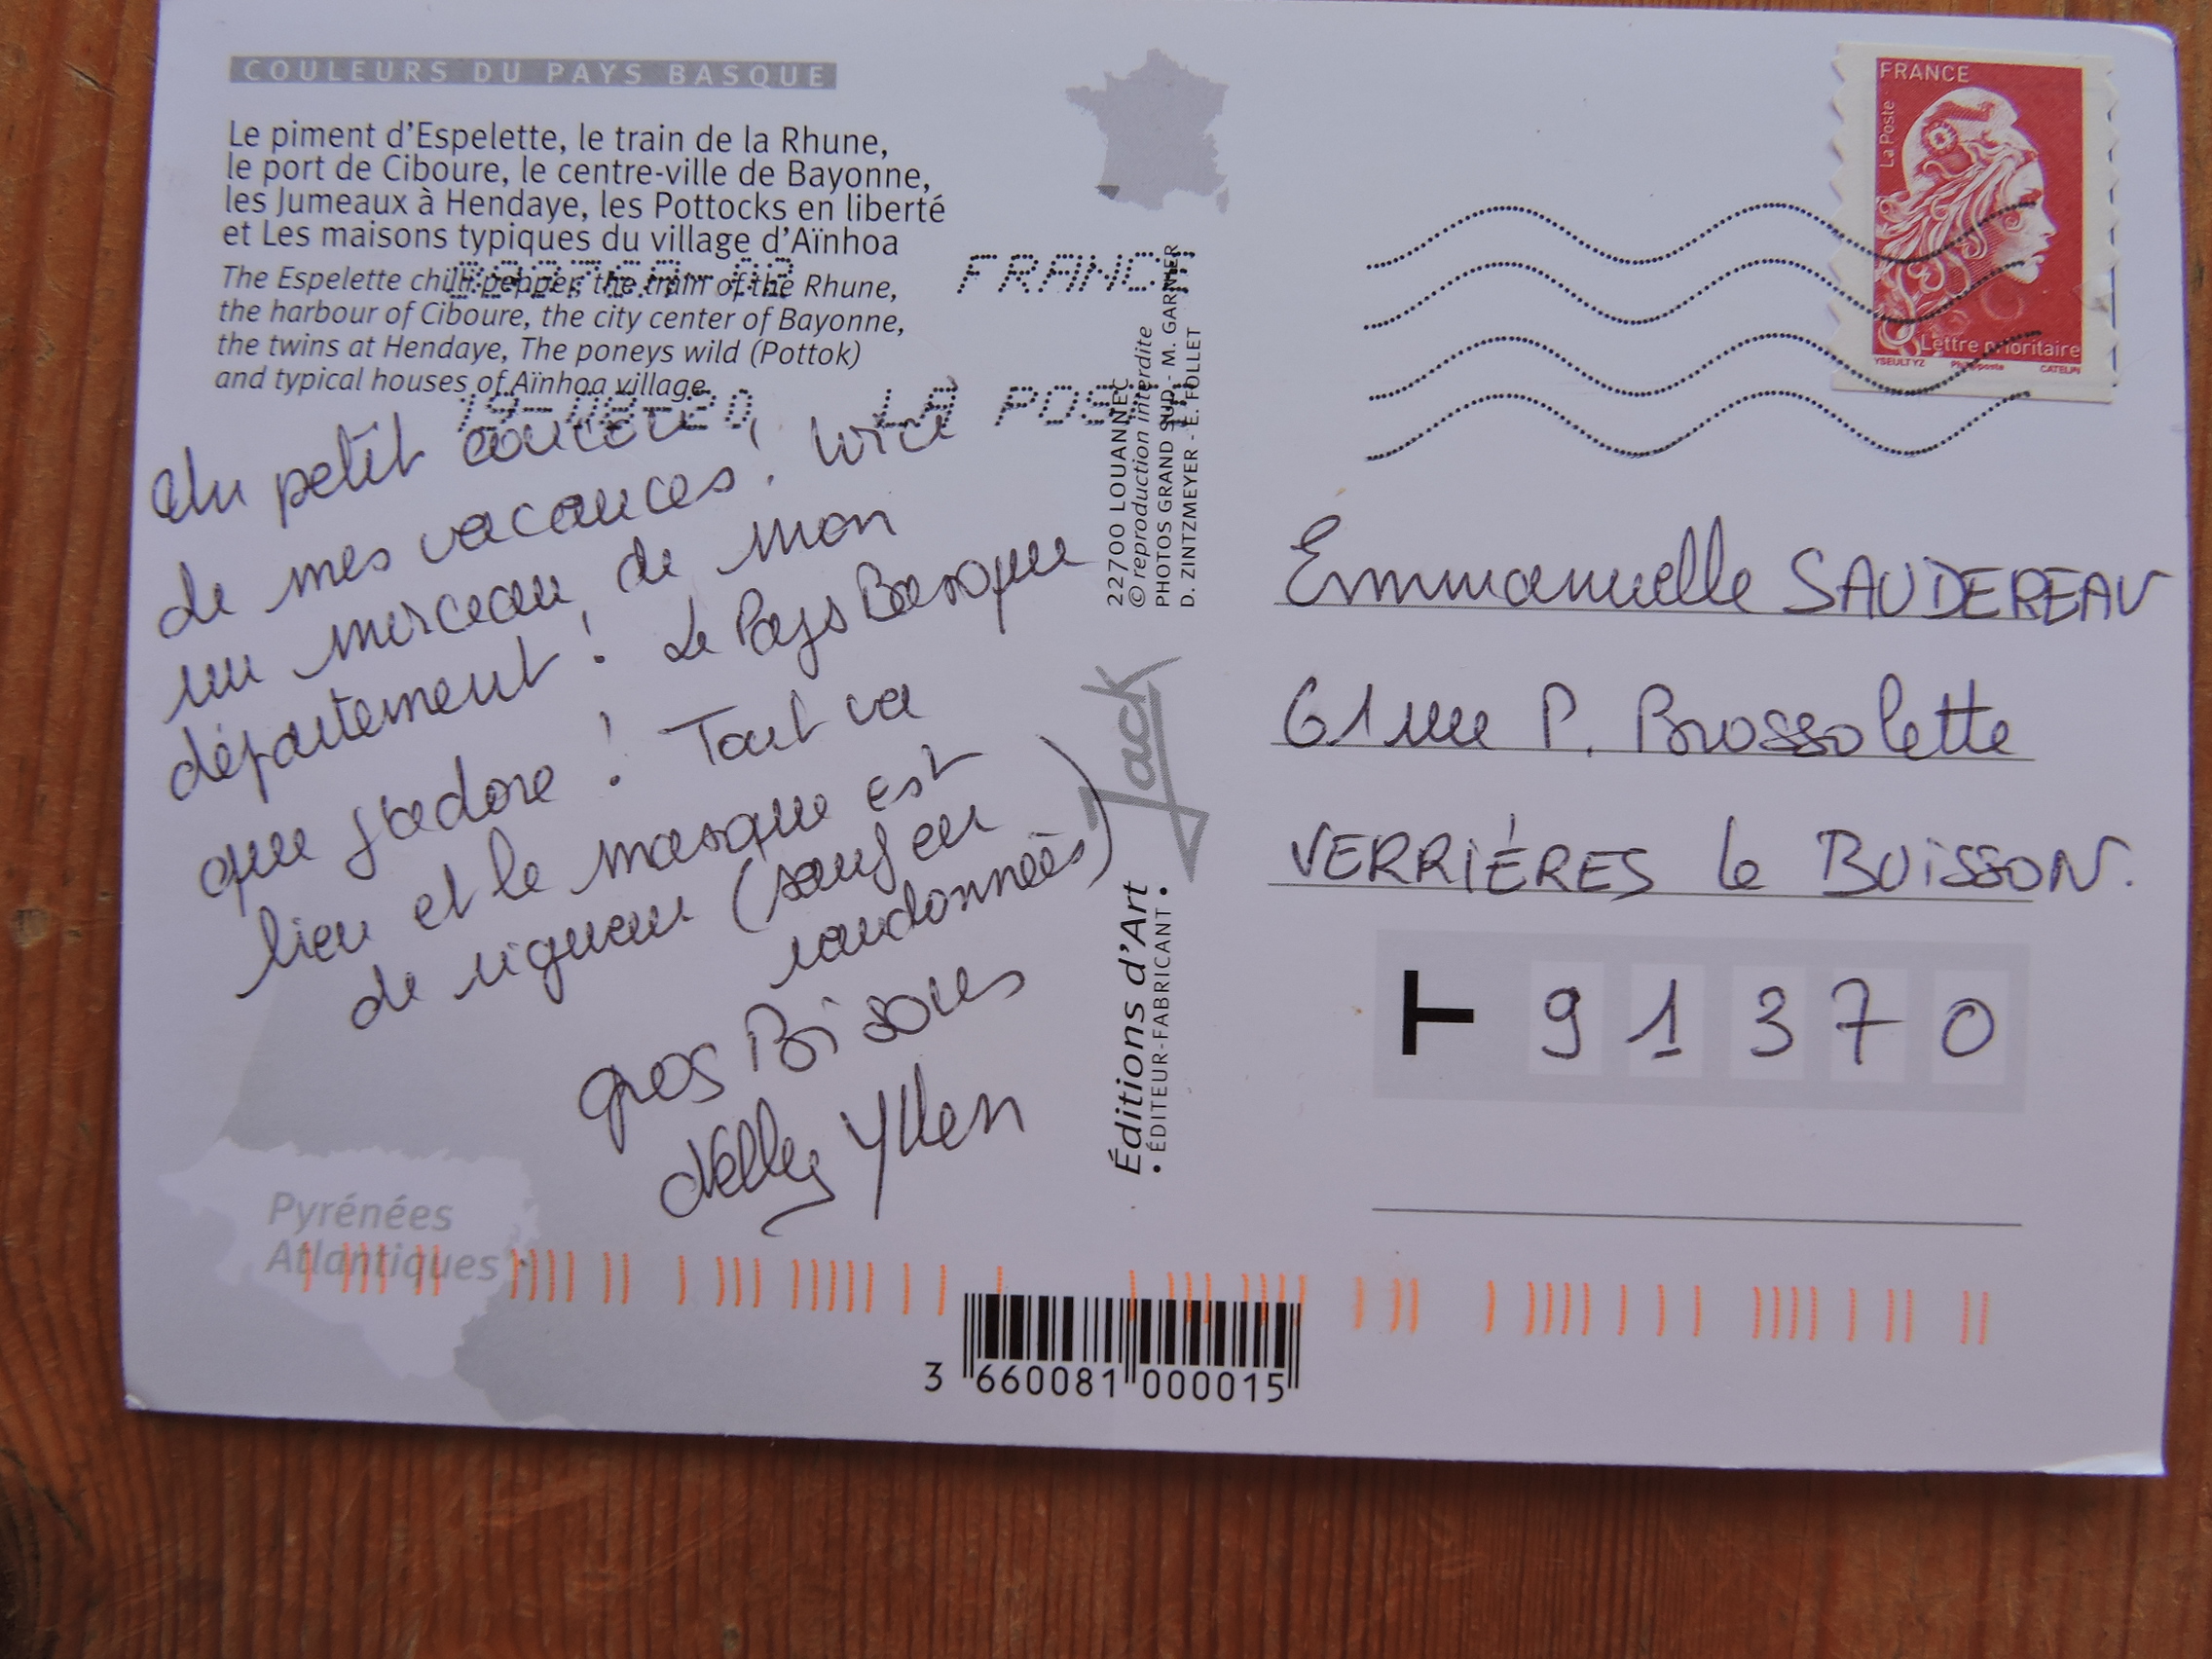 COULEURS DU PAYS BASQUE
Le piment d'Espelette, le train de la Rhune,
le port de Ciboure, le centre-ville de Bayonne,
les Jumeaux à Hendaye, les Pottocks en liberté
et Les maisons typiques du village d'Aïnhoa
The Espelette chilli pepper, the train of the Rhune,
the harbour of Ciboure, the city center of Bayonne,
the twins at Hendaye, The poneys wild (Pottok)
and typical houses of Aïnhoa village.
FRANCE
19-08-20 LA POSTE
Un petit coucou
de mes vacances! Voici
un morceau de mon
département! Le Pays Basque
que j'adore! Tout va
bien et le masque est
de rigueur (sauf en
randonnées)
Gros Bisous
Nelly
Pyrénées
Atlantiques
22700 LOUANNEC
© reproduction interdite
PHOTOS GRAND SUD - M. GARNIER
D. ZINTZMEYER - E. FOLLET
Jack
Éditions d'Art
• ÉDITEUR-FABRICANT •
3 660081 000015
FRANCE
La Poste
Lettre prioritaire
YSEULT YZ Phil@poste CATELIN
Emmanuelle SAUDEREAU
61 rue P. Brossolette
VERRIÈRES le BUISSON.
91370